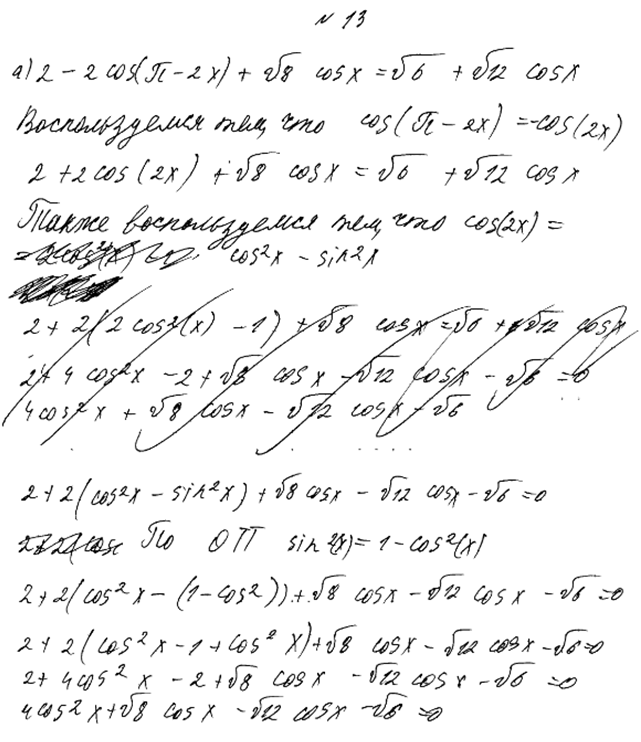 № 13
а) 2 - 2 cos(π - 2x) + √8 cosx = √6 + √12 cosx
Воспользуемся тем, что cos(π - 2x) = -cos(2x)
2 + 2cos(2x) + √8 cosx = √6 + √12 cosx
Также воспользуемся тем, что cos(2x) =
= cos²x - sin²x
2 + 2(2cos²(x) - 1) + √8 cosx = √6 + √12 cosx
2 + 4cos²x - 2 + √8 cosx - √12 cosx - √6 = 0
4cos²x + √8 cosx - √12 cosx - √6
2 + 2(cos²x - sin²x) + √8 cosx - √12 cosx - √6 = 0
По ОТТ sin²(x) = 1 - cos²(x)
2 + 2(cos²x - (1 - cos²)) + √8 cosx - √12 cosx - √6 = 0
2 + 2(cos²x - 1 + cos²x) + √8 cosx - √12 cosx - √6 = 0
2 + 4cos²x - 2 + √8 cosx - √12 cosx - √6 = 0
4cos²x + √8 cosx - √12 cosx - √6 = 0